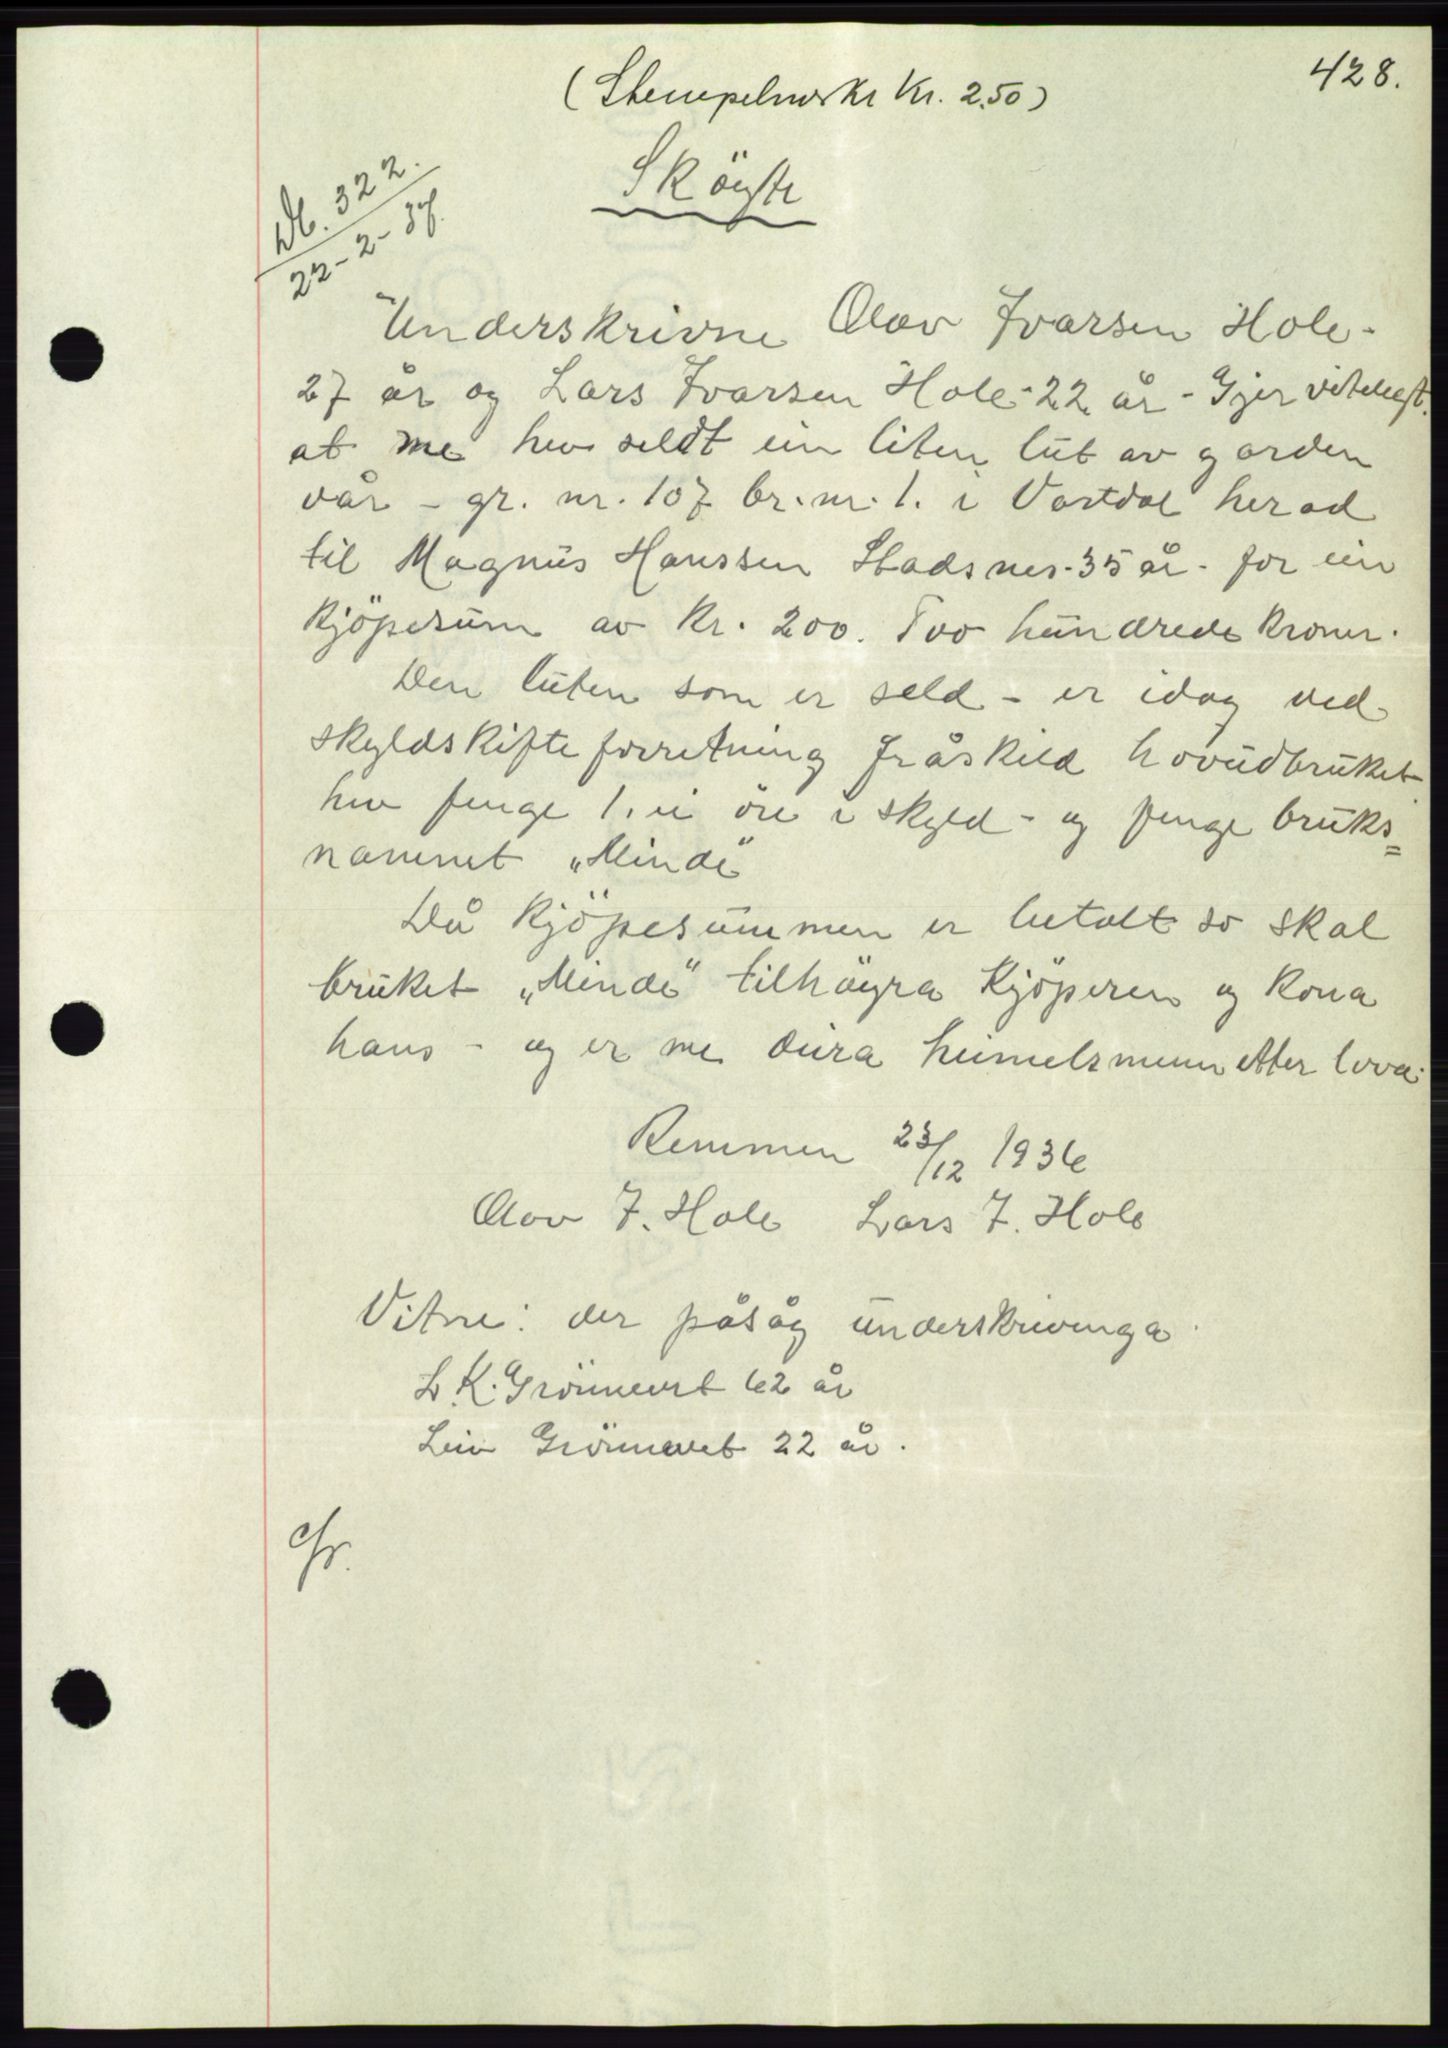 428.
(Stempelmerke Kr. 2.50)
Sköyte
Db. 322.
22-2-37.
Underskrivne Olav Ivarsen Hole -
27 år og Lars Ivarsen Hole - 22 år - Gjer vitelegt.
at me hev seldt ein liten lut av garden
vår - gr. nr. 107 br. nr. 1. i Vartdal herad
til Magnus Hanssen Stadsnes - 35 år - for ein
kjöpesum av kr. 200. Tvo hundrede kroner.
Den luten som er seld - er idag ved
skyldskifteforretning fråskild hovudbruket
hev fenge 1. ei öre i skyld - og fenge bruks=
namnet „Minde"
Då kjöpesummen er betalt so skal
bruket „Minde" tilhöyra kjöperen og kona
hans - og er me dura heimelsmenn etter lova.
Remmen 23/12 1936
Olav I. Hole Lars I. Hole
Vitne: der påsåg underskrivinga
L. K. Grönnevet 62 år
Leiv Grönnevet 22 år.